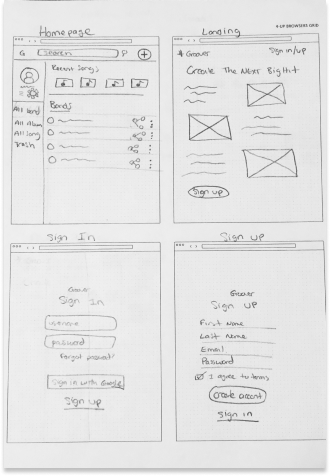 4-UP BROWSERS GRID
Homepage
G Search
Recent Songs
Bands
All Band
All Album
All Song
Trash
Landing
# Groover Sign in/up
Create The Next Big Hit
Sign up
Sign In
Groover
Sign In
username
password
Forgot password?
Sign in with Google
Sign up
Sign up
Groover
Sign UP
First Name
Last Name
Email
Password
I agree to terms
Create account
Sign in